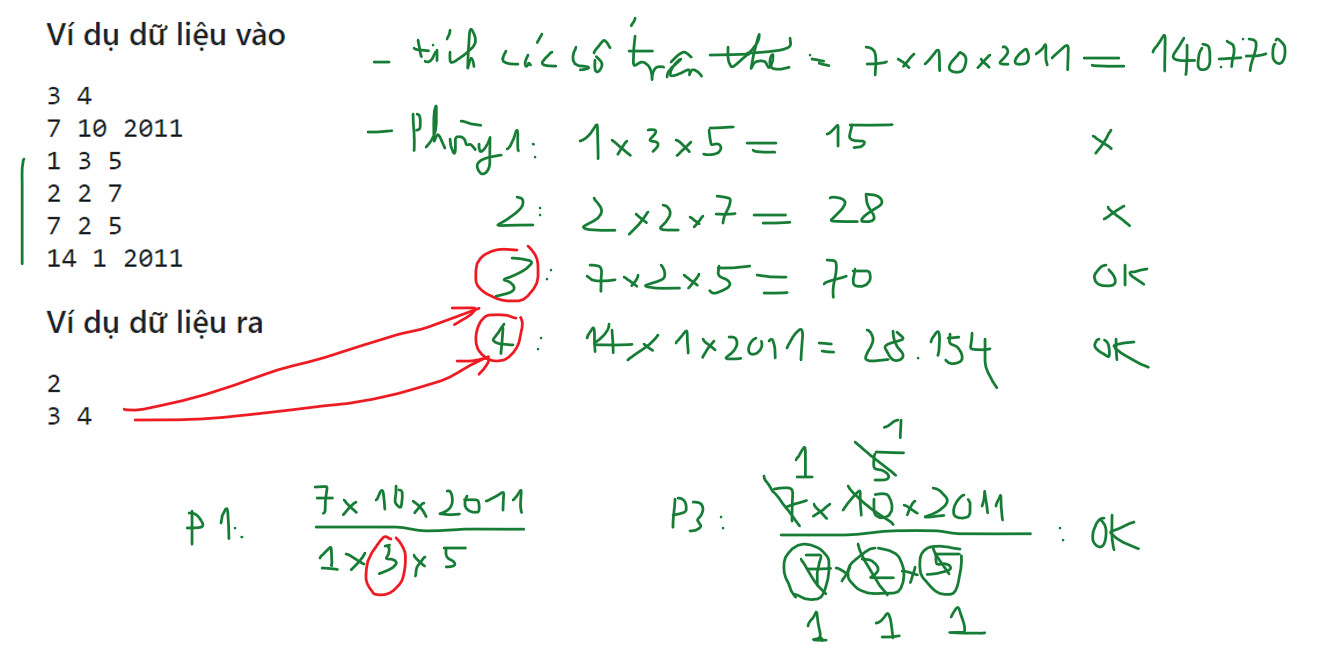 Ví dụ dữ liệu vào
3 4
7 10 2011
1 3 5
2 2 7
7 2 5
14 1 2011
Ví dụ dữ liệu ra
2
3 4
- tích các số trên thẻ = 7 x 10 x 2011 = 140.770
- Phòng 1: 1 x 3 x 5 = 15 x
2: 2 x 2 x 7 = 28 x
3: 7 x 2 x 5 = 70 OK
4: 14 x 1 x 2011 = 28.154 OK
P1:
7 x 10 x 2011
1 x 3 x 5
P3:
1
1 5
7 x 10 x 2011
7 x 2 x 5
: OK
1 1 1